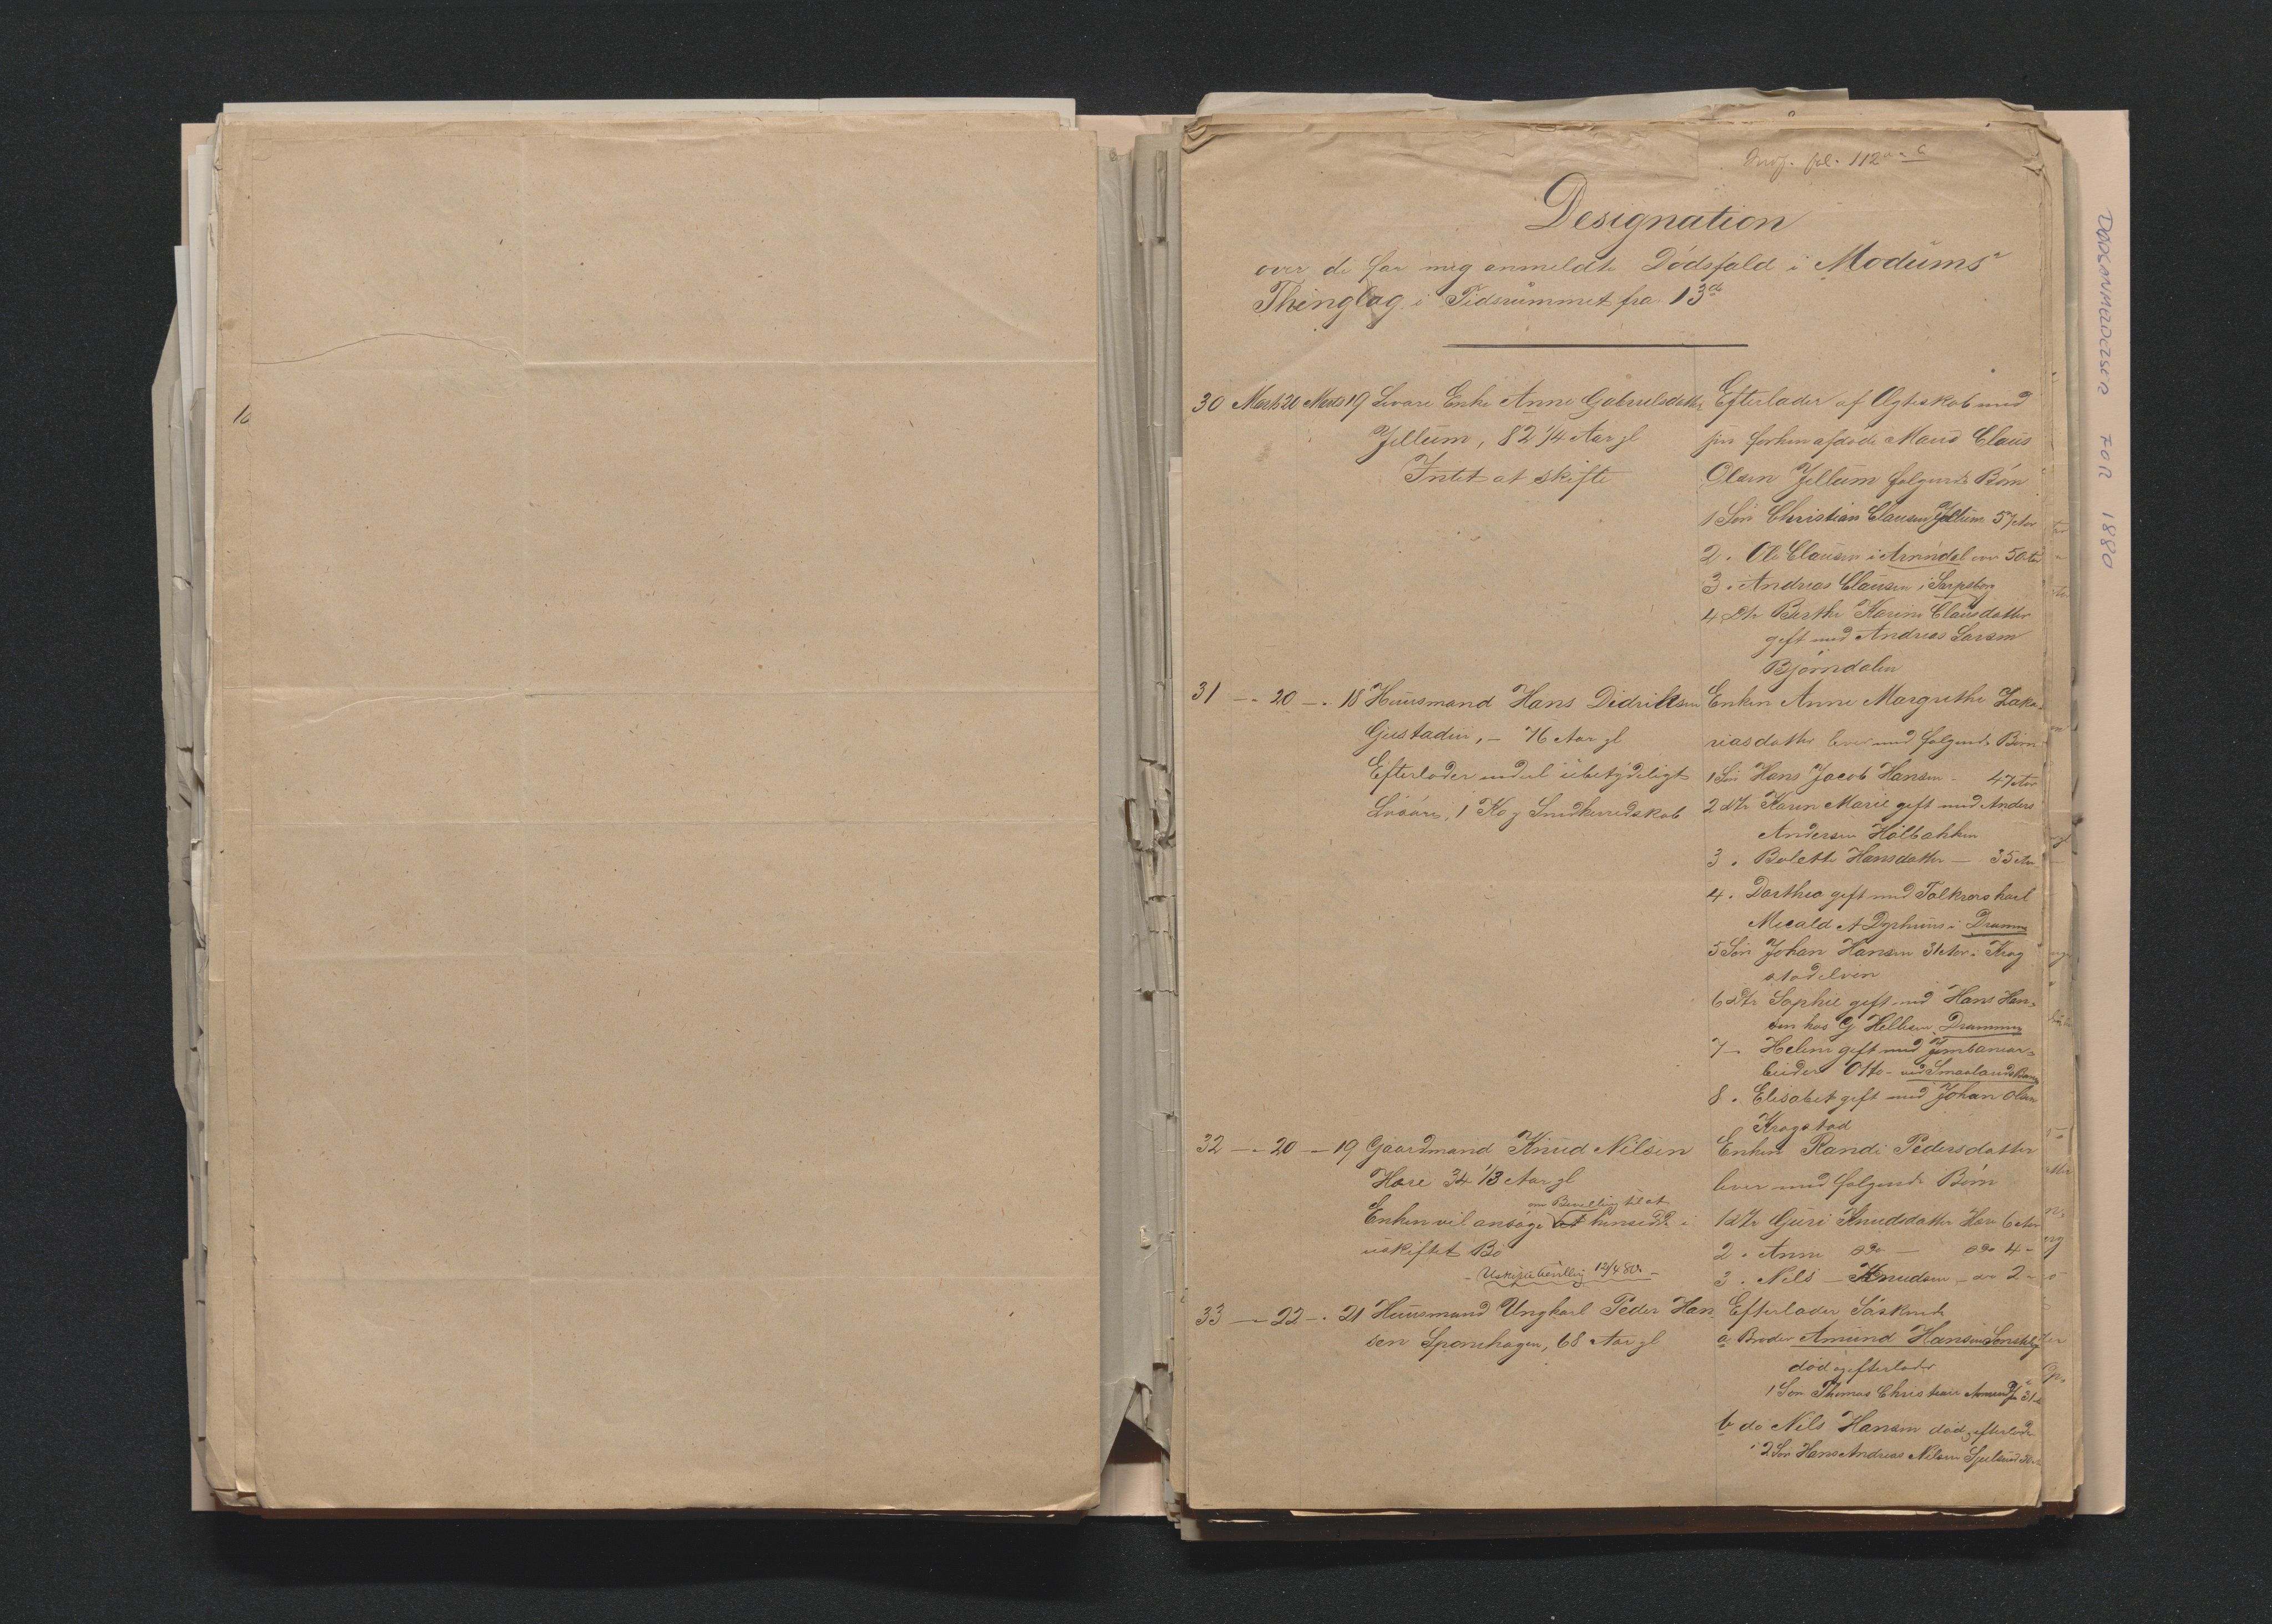 16
fol. 112
Designation
over de for mig anmeldte Dödsfald i Modums
Thinglag i Tidsrummet fra 13de
30 Marts 20 Marts 19 Enke Anne Gabrielsdatter
Jellum, 82 1/4 Aar gl
Intet at skifte
Efterlader af Ægteskab med
sin forhen afdøde Mand Claus
Olsen Jellum følgende Børn
1 Søn Christian Clausen Jellum 57 Aar
2 . Ole Clausen i Arendal over 50 Aar
3 . Andreas Clausen i Sarpsborg
4 Dtr Berthe Karine Clausdatter
gift med Andreas Larsen
Bjørndalen
31 -"- 20 -"- 18 Huusmand Hans Didriksen
Gustadeie, - 76 Aar gl
Efterlader endel ubetydeligt
1 Ko og Snedkerredskab
Enken Anne Margrethe Zaka-
riasdatter lever med følgende Børn
1 Søn Hans Jacob Hansen - 47 Aar
2 Dtr Karen Marie gift med Anders
Andersen Holbakken
3 . Bolette Hansdatter - 35 Aar
4 . Dorthea gift med
i Drammen
5 Søn Johan Hansen 31 Aar i Krog
stadelven
6 Dtr Sophie gift med Hans Han-
sen hos G Drammen
7 - Helene gift med Jernbanear-
beider Otto - ved Smaalandsbanen
8 . Elisabet gift med Johan Olsen
Krogstad
32 -"- 20 - 19 Gaardmand Knud Nilsen
Hare 34 1/3 Aar gl
om Bevilling til at
Enken vil ansøge hensidde i
uskiftet Bo
- Uskiftebevilling 12/4 80 -
Enken Randi Pedersdatter
lever med følgende Børn
1 Dtr Guri Knudsdatter Hare 6 Aar
2 . Anne do - do 4 -
3 . Nils - Knudsen - do 2 -
33 -"- 22 -"- 21 Huusmand Ungkarl Peder Han
sen Sponehagen, 68 Aar gl
Efterlader Søskende
a Broder Amund Hansen
død og efterlader
1 Søn Thomas Christian
b do Nils Hansen død, efterlader
2 Søn Hans Andreas Nilsen
DØDSANMELDELSER FOR 1880